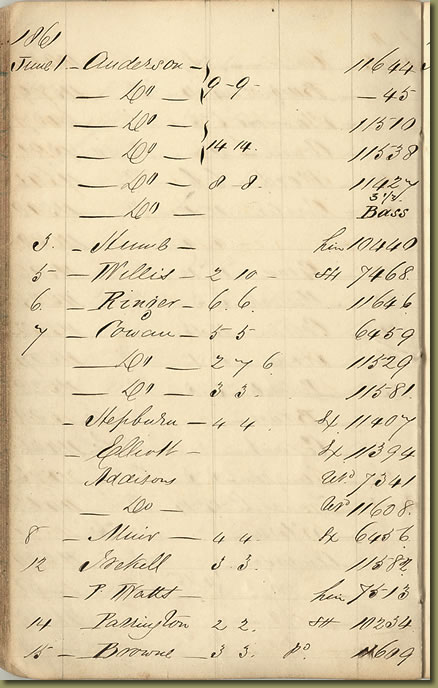 1861
June 1 - Anderson - 9-9- 11644
— Do — — 45
— Do — 11510
— Do — 14 14. 11538
— Do — 8-8. 11427
3 1/2.
— Do — Bass
3. - Humb - 10440
5 - Willis - 2 10 - SH 7468.
6. - Ringer - 6.6. 11646
7 - Cowan - 5 5 6459
— Do — 2 7 6 11529
— Do — 3 3. 11581.
- Hepburn - 4 4 - Ex 11407
- Elliott - Ex 11394
Addisons Wrd 7341
— Do — Wrd 11608.
8 - Muir - 4 4. Ex 6456
12 - 3.3. 11582.
- P. Watts - 7513
14 - Parrington 2 2. - SH 10234
15 - Browne - 3 3. 11609